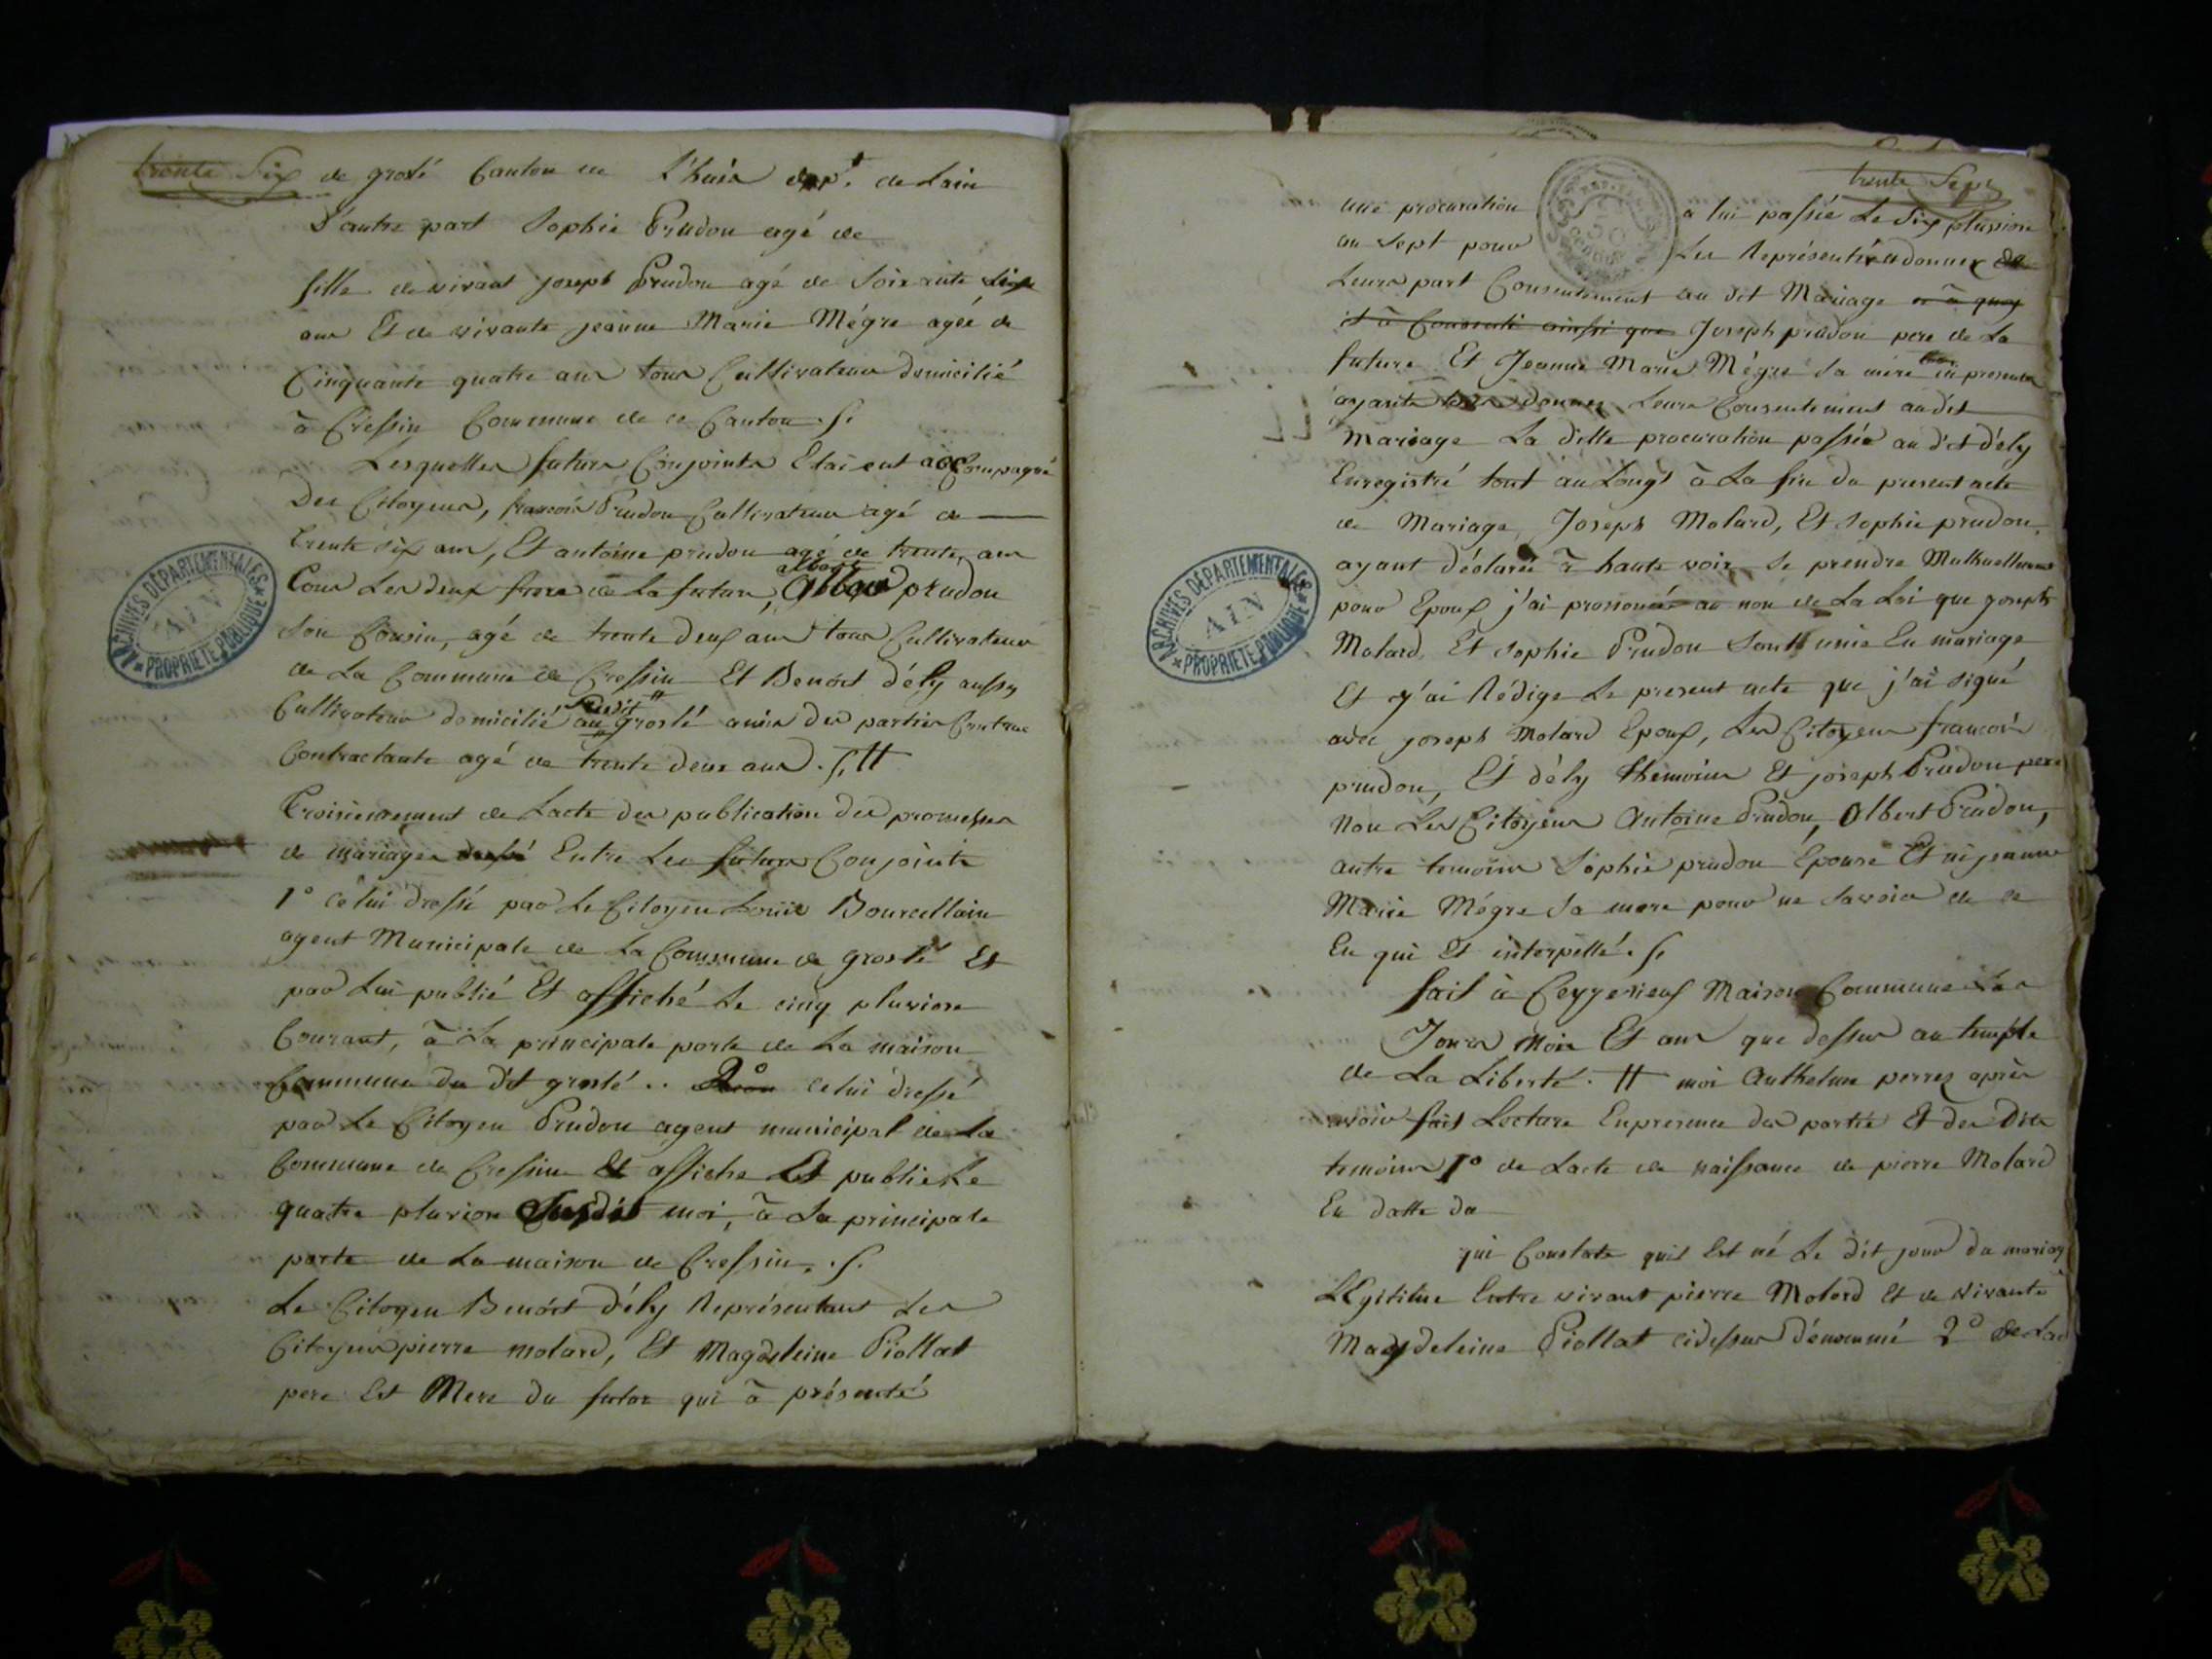 trente Six
de grolé Canton de l'huis dep.t de Lain
D'autre part Sophie Prudon agé de
fille de vivant joseph Prudon agé de Soixante
ans Et de vivante jeanne Marie Mégre agée de
Cinquante quatre ans tous Cultivateur domicilié
à Cressin Commune de ce Canton
Lesquelles futurs Conjoints Etaient accompagné
Des Citoyens, francois Prudon Cultivateur agé de
trente six ans, Et antoine prudon agé de trente ans
tous Les deux frere de La future, albert prudon
Son Cousin, agé de trente deux ans tous Cultivateurs
de La Commune de Cressin Et Benóit d'ély aussy
Cultivateur domicilié au susdit grolé amis des parties Contrac
Contractante agé de trente deux ans
Troisiemement de Lacte des publication des promesses
de mariages dressé Entre Les futurs Conjoints
1° Célui dressé par Le Citoyen Louis Bourcellain
agent Municipale de La Commune de groslé Et
par Lui publié Et affiché Le cinq pluviose
Courant, à La principale porte de La maison
Commune du dit groslé .. 2° celui dressé
par Le Citoyen Prudon agent municipal de La
Commune de Cressin Et affiche Et publie Le
quatre pluviose Susdit moi, à La principale
porte de La maison de Cressin
Le Citoyen Benóit d'ély Représentant Les
Citoyens pierre molard, Et Magdeleine Piollat
pere Et Mere du futur qui à présenté
ARCHIVES DÉPARTEMENTALES
AIN
PROPRIÉTÉ PUBLIQUE
trente Sept
une procuration a lui passée Le Six pluviose
au Sept pour Les Représenter donner de
Leurs part Consentement au dit Mariage et à quoy
il à Consenti ainssi que Joseph prudon pere de La
future Et Jeanne Marie Mégre Sa mere ici presents
ayants donner Leurs Consentement audit
Mariage La ditte procuration passée au dit d'ély
Enregistré tout au Longt à La fin du present acte
de Mariage, Joseph Molard, Et Sophie prudon
ayant déclaré à haute voix Se prendre Mutuellement
pour Epoux j'ai prononcé au non de La Loi que joseph
Molard Et Sophie Prudon Sont unie En mariage
Et j'ai Rédigé Le present acte que j'ai signé
avec joseph Molard Epoux, Les Citoyens francois
prudon, Et d'ély themoins Et joseph Prudon pere
Non Les Citoyens Antoine Prudon, Albert Prudon,
autre temoins Sophie prudon Epouse Et ni jeanne
Marie Mégre Sa mere pour ne Savoir de ce
En qui Et interpellé
fait à Ceyzerieux Maison Commune Les
Jours Mois Et ans que dessus au temple
de La Liberté. moi Anthelme perrez après
avoir fait Lecture En presence des partie Et des Dits
temoins 1° de Lacte de naissance de pierre Molard
En datte du
qui Constate quil Est né Le dit jour du mariag
LEgitime Entre vivant pierre Molard Et de vivante
Magdeleine Piollat cidessus dénommé 2° de Lac
ARCHIVES DÉPARTEMENTALES
AIN
PROPRIÉTÉ PUBLIQUE